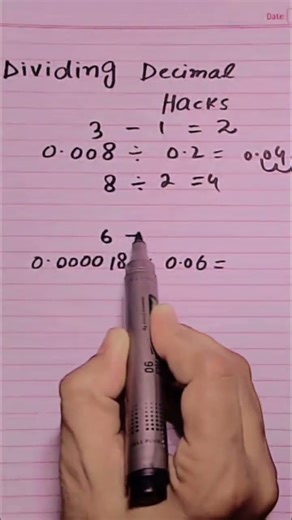 Date:
Dividing Decimal
Hacks
3 - 1 = 2
0.008 ÷ 0.2 = 0.04
8 ÷ 2 = 4
6 -
0.000018 0.06 =
90